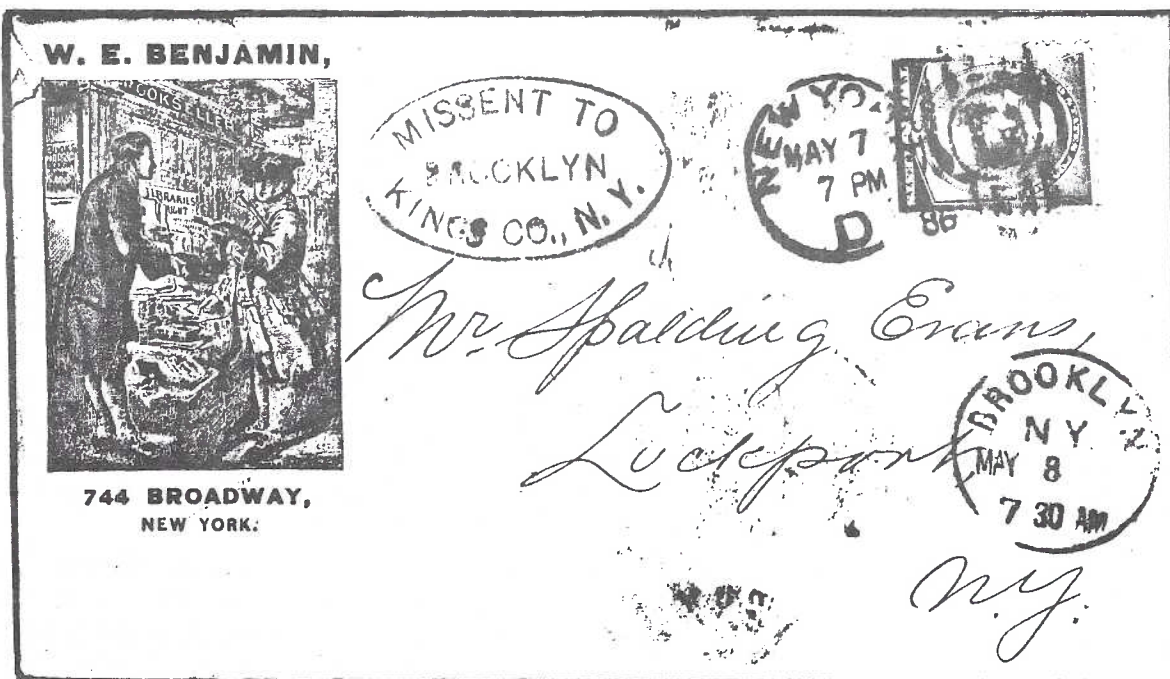 W. E. BENJAMIN,
BOOKSELLER
LIBRARIES
744 BROADWAY,
NEW YORK.
MISSENT TO
BROOKLYN
KINGS CO., N. Y.
NEW YO
MAY 7
7 PM
D
86
Mr. Spalding Evans,
Lockport
N.Y.
BROOKLYN
NY
MAY 8
7 30 AM